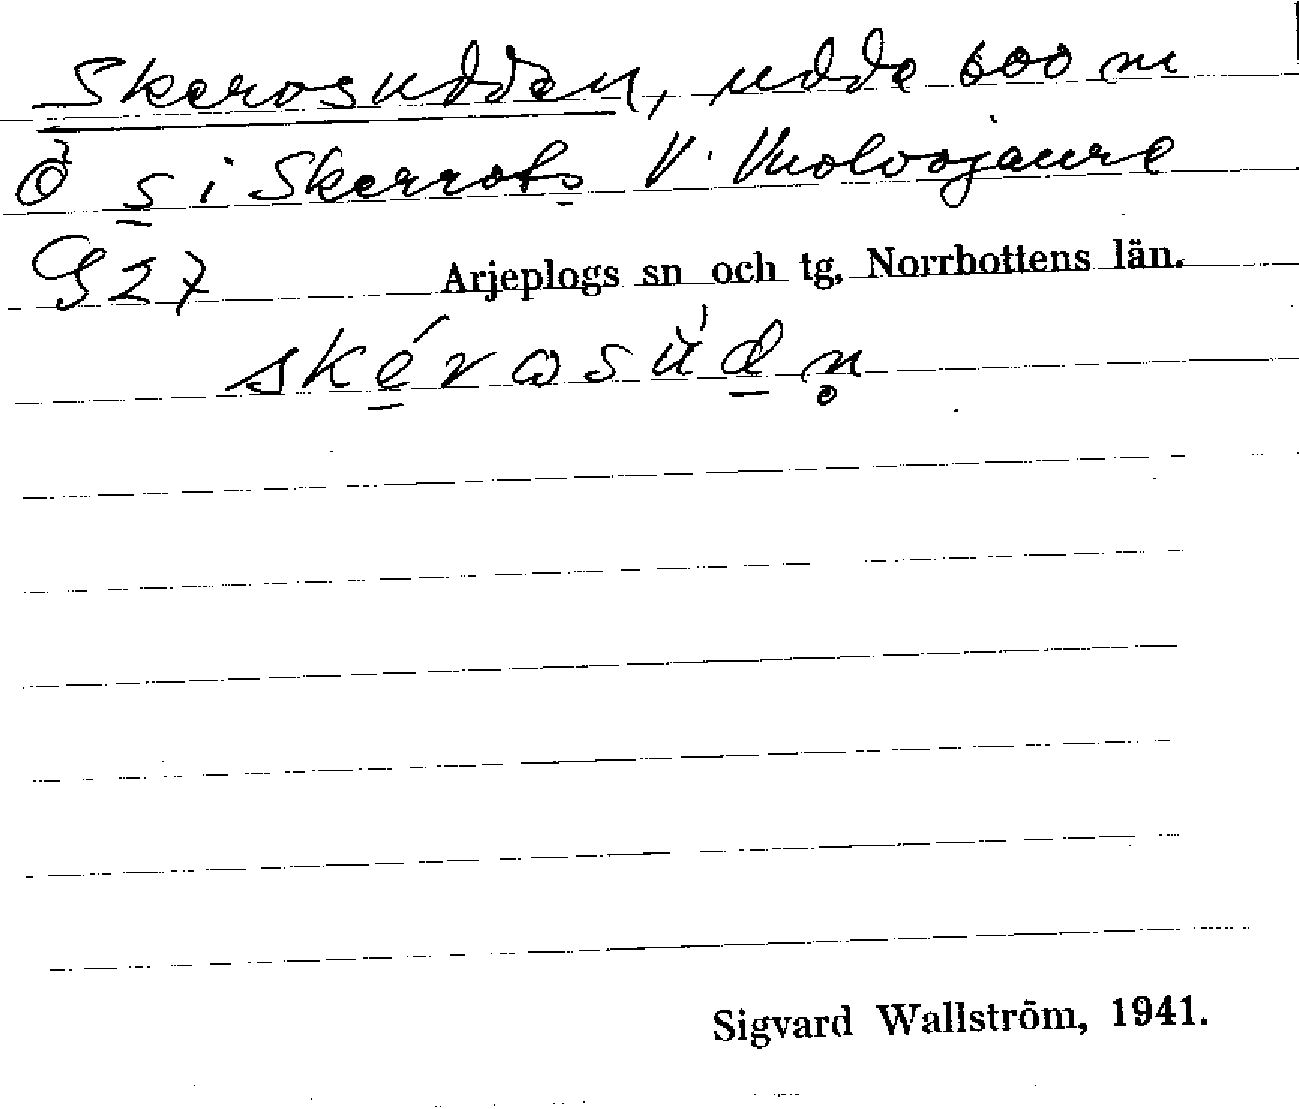 Skerosudden, udde 600 m
Ö s i Skerrots V. Vuolvojaure
G 27 Arjeplogs sn och tg, Norrbottens län.
skérosùdn̥
Sigvard Wallström, 1941.